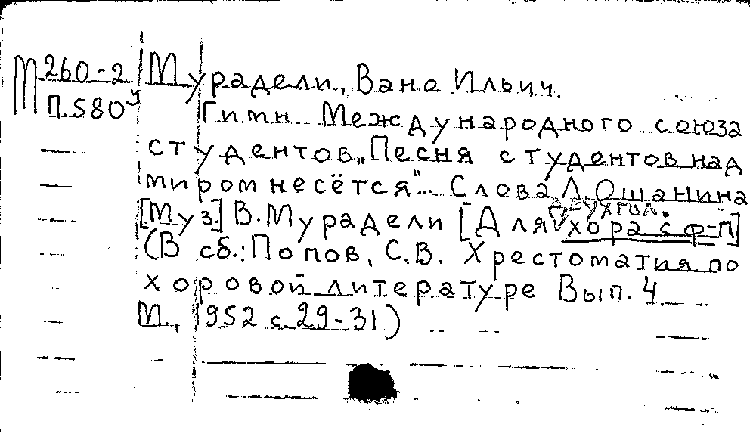 М 260-2 Мурадели, Вано Ильич.
П.580у Гимн Международного союза
студентов „Песня студентов над
миром несётся". Слова Л. Ошанина
[Муз.] В. Мурадели [Для 2-ухгол. хора с ф-п]
(В сб.: Попов, С.В. Хрестоматия по
хоровой литературе Вып. 4
М., 1952 с. 29-31)